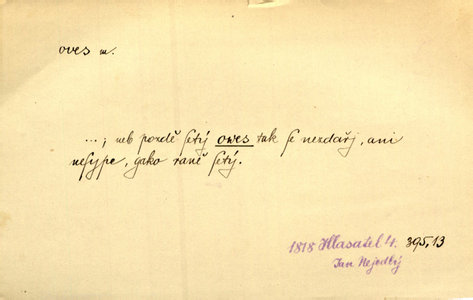 oves m.
...; neb pozdě setý owes tak se nezdařj, ani
nesype, gako raně setý.
1818 Hlasatel 4. 395,13
Jan Nejedlý